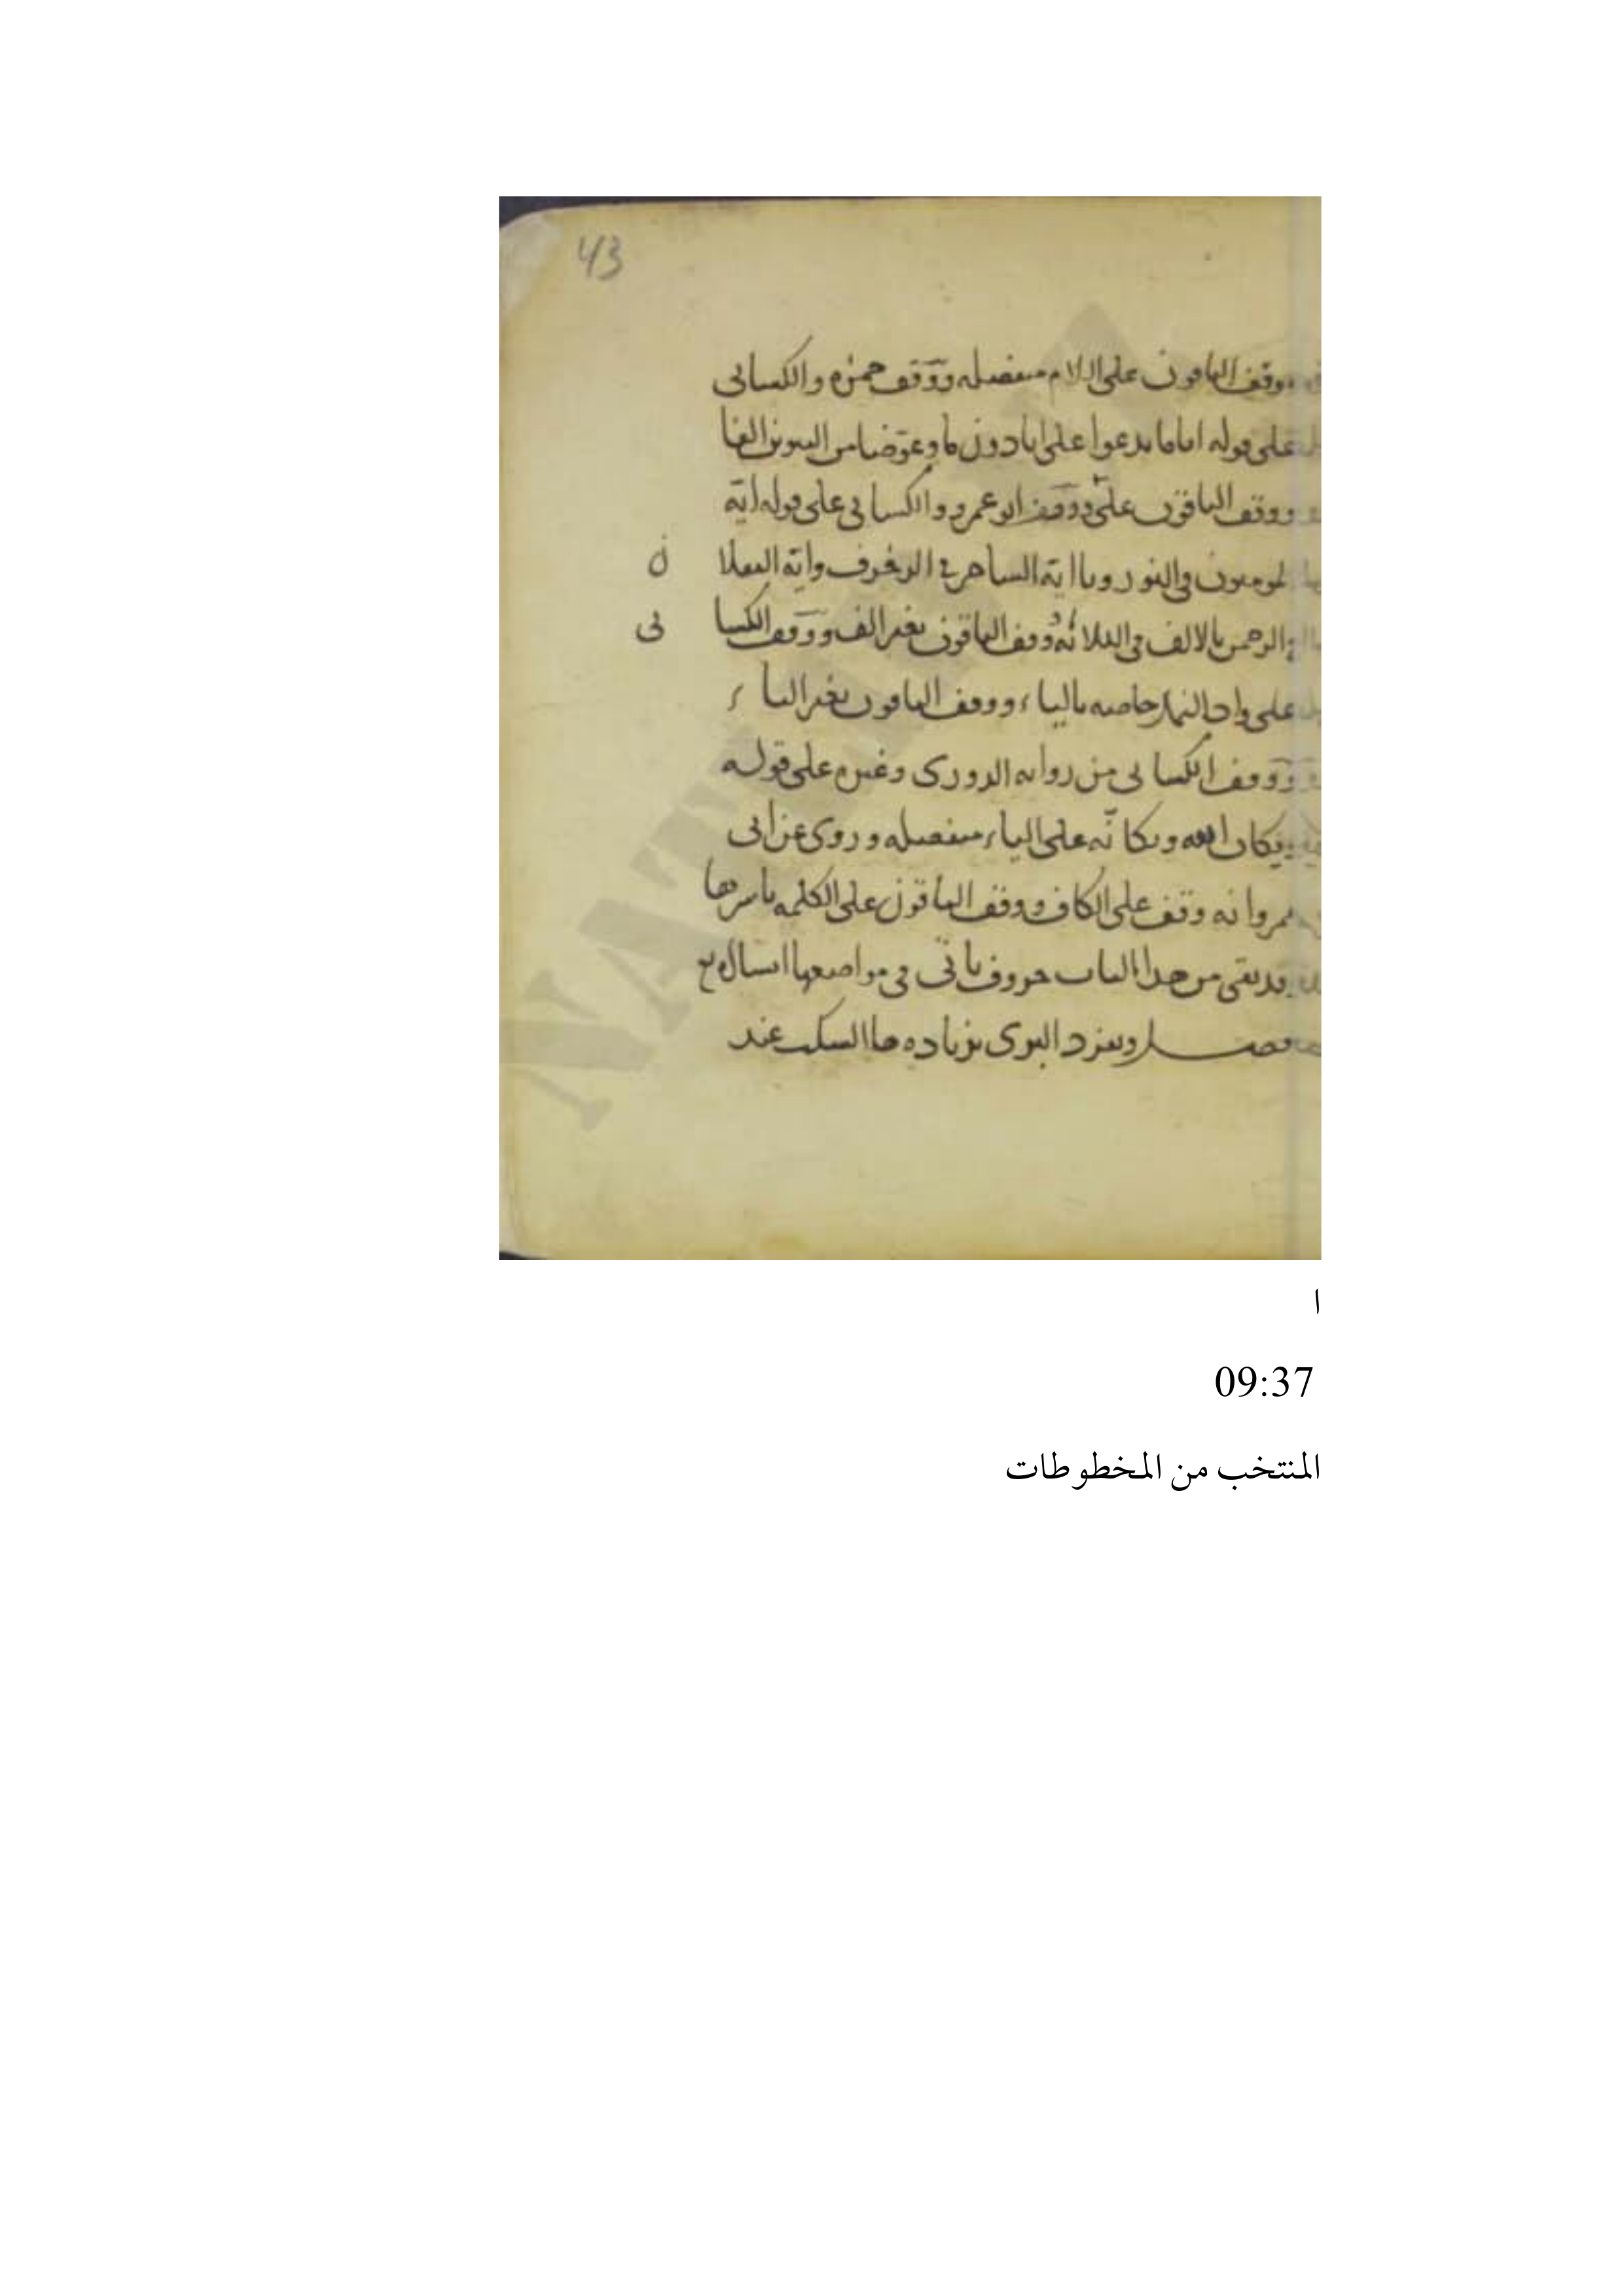 43
ووقف الباقون على اللام منفصله ووقف حمزه والكسائى
على قوله اياما تدعوا على ايا دون ما وعوضا من التنوين الفا
ووقف الباقون على ما ووقف ابو عمرو والكسائى على قوله ايه
المومنون فى النور ويا ايه الساحر فى الزخرف وايه الثقلا ن
فى الرحمن بالالف فى الثلاثه ووقف الباقون بغير الف ووقف الكسا ئى
على واد النمل خاصه بالياء ووقف الباقون بغير الياء
ووقف الكسائى من روايه الدورى وغيره على قوله
ويكان الله ويكانه على الياء منفصله وروى عن ابى
عمرو انه وقف على الكاف ووقف الباقون على الكلمه باسرها
وقد بقى من هذا الباب حروف تاتى فى مواضعها
فصل وتفرد البزى بزياده ها السكت عند
ا
09:37
المنتخب من المخطوطات